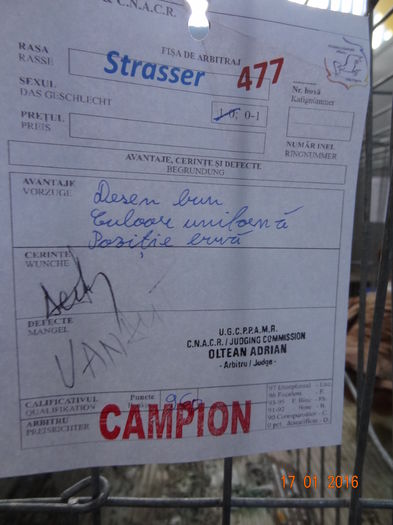 & C.N.A.C.R.
RASA
RASSE
FIȘA DE ARBITRAJ
Strasser
477
SEXUL
DAS GESCHLECHT
1-0, 0-1
Nr. boxă
Kafignummer
PREȚUL
PREIS
NUMĂR INEL
RINGNUMMER
AVANTAJE, CERINȚE ȘI DEFECTE
BEGRUNDUNG
AVANTAJE
VORZUGE
Desen bun
Culoare uniformă
Poziție bună
CERINȚE
WUNCHE
DEFECTE
MANGEL
VANDUT
U.G.C.P.P.A.M.R.
C.N.A.C.R. / JUDGING COMMISSION
OLTEAN ADRIAN
- Arbitru / Judge -
CALIFICATIVUL
QUALIFIKATION
Puncte
ARBITRU
PREISRICHTER
CAMPION
97 Exceptional
96 Excelent
93-95 F. Bine
91-92 Bine
17 01 2016